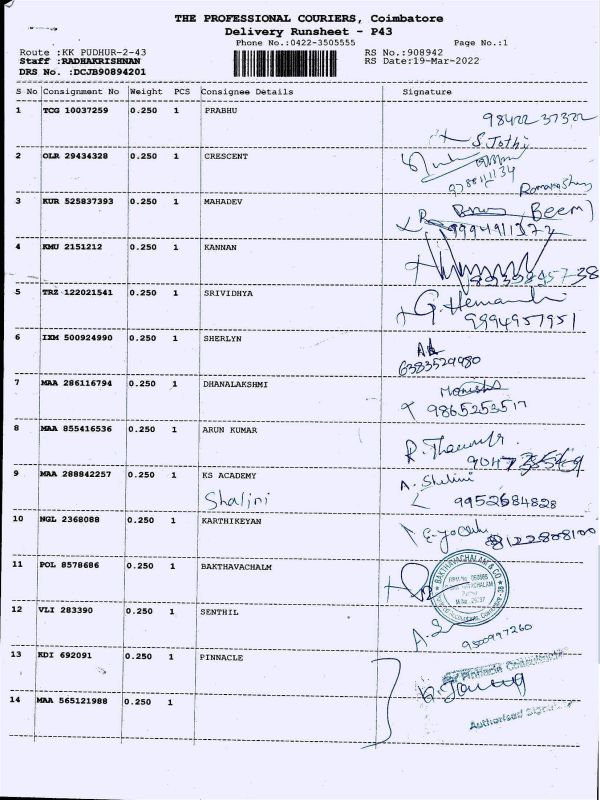 THE PROFESSIONAL COURIERS, Coimbatore
Delivery Runsheet - P43
Phone No.:0422-3505555 Page No.:1
Route :KK PUDHUR-2-43 RS No.:908942
Staff :RADHAKRISHNAN RS Date:19-Mar-2022
DRS No. :DCJB90894201
S No Consignment No Weight PCS Consignee Details Signature
1 TCG 10037259 0.250 1 PRABHU
S. Jothi
2 OLR 29434328 0.250 1 CRESCENT
3 KUR 525837393 0.250 1 MAHADEV
(Beem)
9994911372
4 KMU 2151212 0.250 1 KANNAN
5 TRZ 122021541 0.250 1 SRIVIDHYA
9994957951
6 IXM 500924990 0.250 1 SHERLYN
6383529980
7 MAA 286116794 0.250 1 DHANALAKSHMI
8 MAA 855416536 0.250 1 ARUN KUMAR
9 MAA 288842257 0.250 1 KS ACADEMY
A. Shalini
Shalini 9952684828
10 NGL 2368088 0.250 1 KARTHIKEYAN
8122808100
11 POL 8578686 0.250 1 BAKTHAVACHALM
BAKTHAVACHALAM & CO
12 VLI 283390 0.250 1 SENTHIL
9500997260
13 KDI 692091 0.250 1 PINNACLE
14 MAA 565121988 0.250 1
Authorised